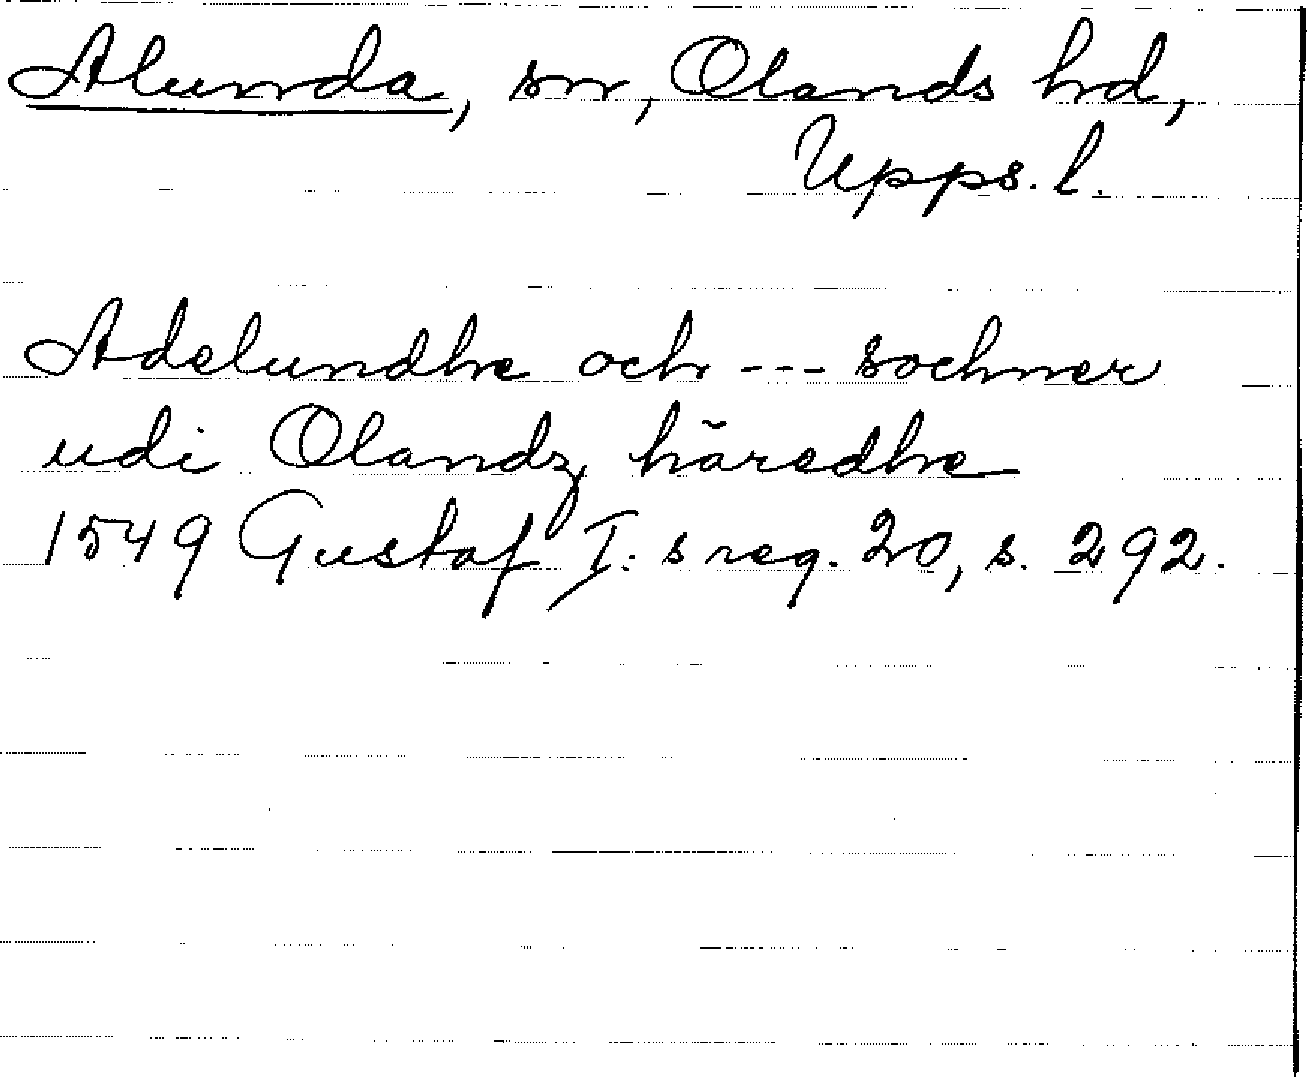 Alunda, sn, Olands hd,
Upps. l.
Adelundhe och --- sochner
udi Olandz häredhe
1549 Gustaf I:s reg. 20, s. 292.